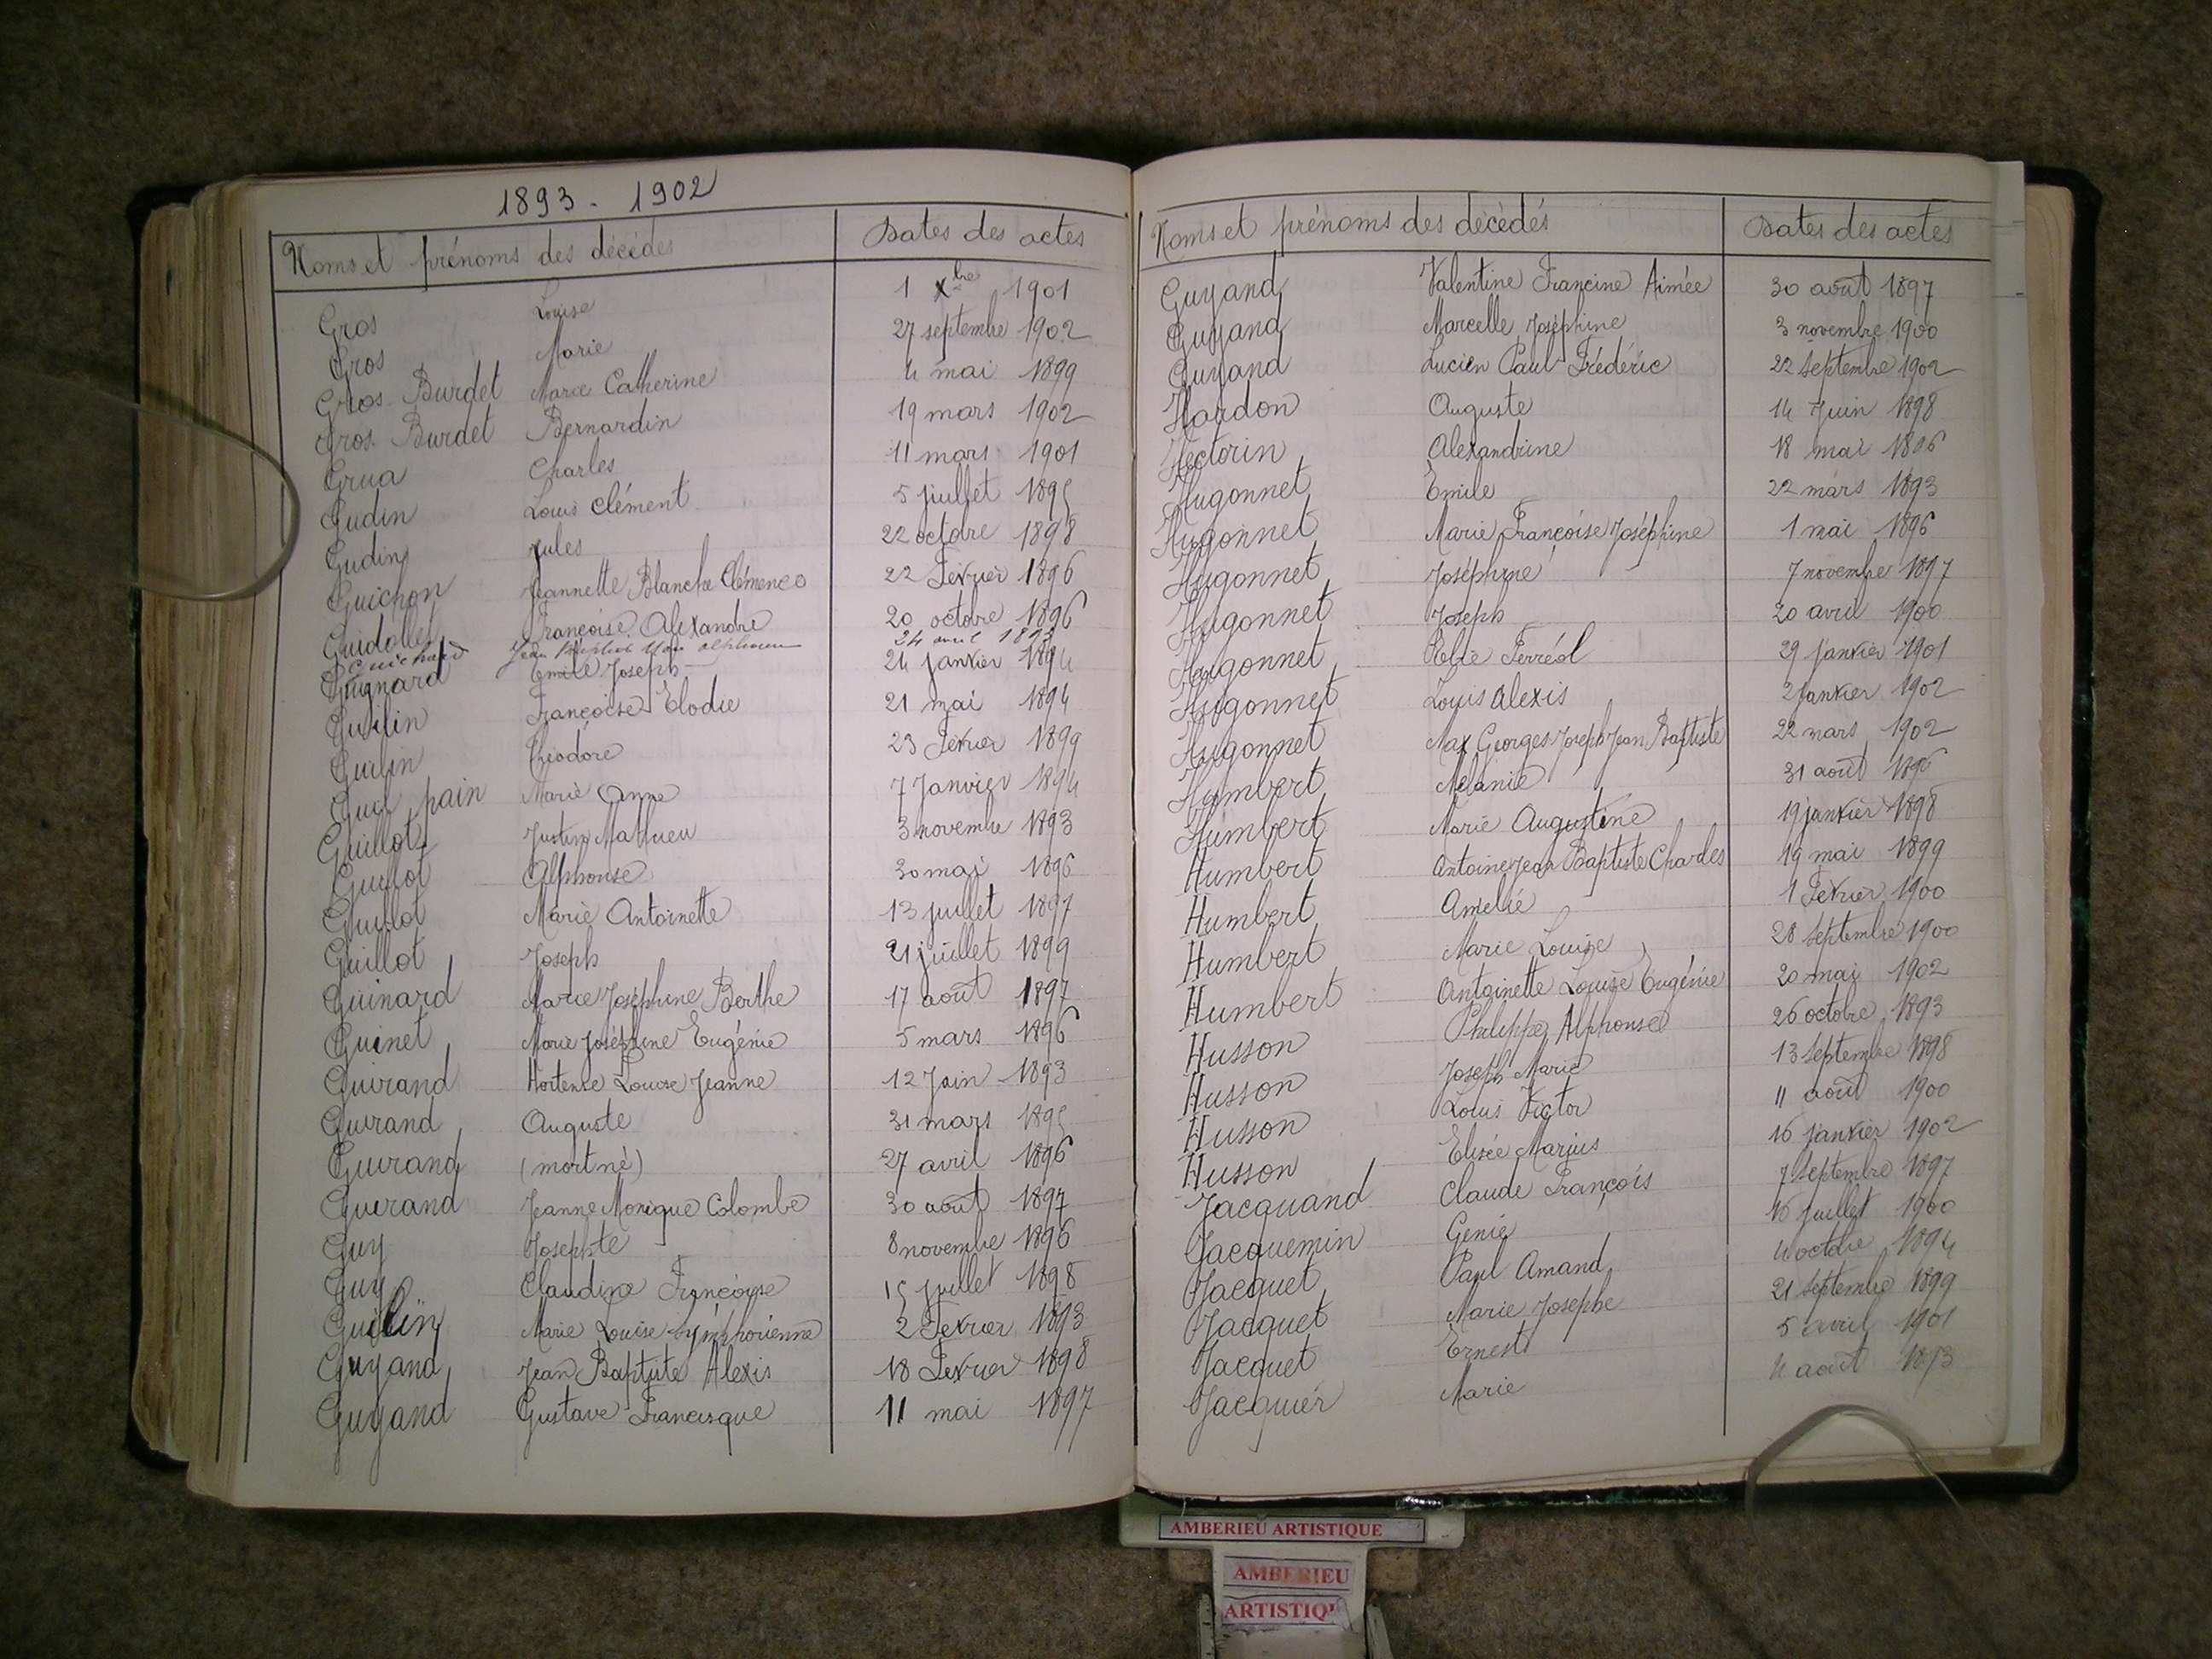 1893 - 1902
Noms et prénoms des décédés Dates des actes
Gros Louise 1 Xbre 1901
Gros Marie 27 septembre 1902
Gros Burdet Marie Catherine 4 mai 1899
Gros Burdet Bernardin 19 mars 1902
Grua Charles 11 mars 1901
Gudin Louis Clément 5 juillet 1895
Gudin Jules 22 octobre 1898
Guichon Jeannette Blanche Clémence 22 Février 1896
Guidollet Françoise Alexandre 20 octobre 1896
Guichard Jean Baptiste 24 avril 1893
Guignard Emile Joseph 24 janvier 1894
Guilin Françoise Elodie 21 mai 1894
Guilin Théodore 23 Février 1899
Guy pain Marie Anne 7 Janvier 1894
Guillot Justin Mathieu 3 novembre 1893
Guillot Alphonse 30 mai 1896
Guillot Marie Antoinette 13 juillet 1897
Guillot Joseph 21 juillet 1899
Guinard Marie Joséphine Berthe 17 août 1897
Guinet Marie Joséphine Eugénie 5 mars 1896
Guirand Hortense Louise Jeanne 12 Juin 1893
Guirand Auguste 31 mars 1895
Guirand (mort né) 27 avril 1896
Guirand Jeanne Monique Colombe 30 août 1897
Guy Josephte 8 novembre 1896
Guy Claudine Françoise 15 juillet 1898
Guilin Marie Louise Symphorienne 2 Février 1893
Guyand Jean Baptiste Alexis 18 Février 1898
Guyand Gustave Francisque 11 mai 1897
Noms et prénoms des décédés Dates des actes
Guyand Valentine Francine Aimée 30 août 1897
Guyand Marcelle Joséphine 3 novembre 1900
Guyand Lucien Paul Frédéric 22 septembre 1902
Hardon Auguste 14 Juin 1898
Hectorin Alexandrine 18 mai 1896
Hugonnet Emile 22 mars 1893
Hugonnet Marie Françoise Joséphine 1 mai 1896
Hugonnet Joséphine 7 novembre 1897
Hugonnet Joseph 20 avril 1900
Hugonnet Ferréol 29 janvier 1901
Hugonnet Louis Alexis 2 janvier 1902
Hugonnet Max Georges Joseph Jean Baptiste 22 mars 1902
Humbert Mélanie 31 août 1896
Humbert Marie Augustine 19 janvier 1898
Humbert Antoine Jean Baptiste Charles 19 mai 1899
Humbert Amélie 1 Février 1900
Humbert Marie Louise 28 septembre 1900
Humbert Antoinette Louise Eugénie 20 mai 1902
Husson Philippe Alphonse 26 octobre 1893
Husson Joseph Marie 13 septembre 1898
Husson Louis Victor 11 août 1900
Husson Elisée Marius 16 janvier 1902
Jacquand Claude François 7 septembre 1897
Jacquemin Génie 16 juillet 1900
Jacquet Paul Amand 4 octobre 1894
Jacquet Marie Josephe 21 septembre 1899
Jacquet Ernest 5 avril 1901
Jacquier Marie 4 août 1893
AMBERIEU ARTISTIQUE
AMBERIEU
ARTISTIQU